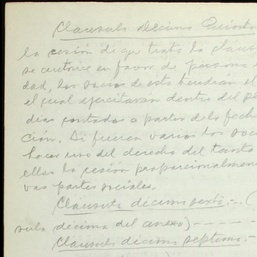 Clausula decimo Quinta
la cesión de que trata la clausu
se victrice en favor de persona
dad, los socios de esta tendran el
el cual ejercitaran dentro del pe
dias contado a partir de la fecha
ción. Si fueran varios los soci
hacer uso del derecho del tanto
ellos la cesión proporcionalmen
vas partes sociales.
Clausula décimo sexta.-- (
sula decima del anexo) - - - -
Clausula décimo septima.-